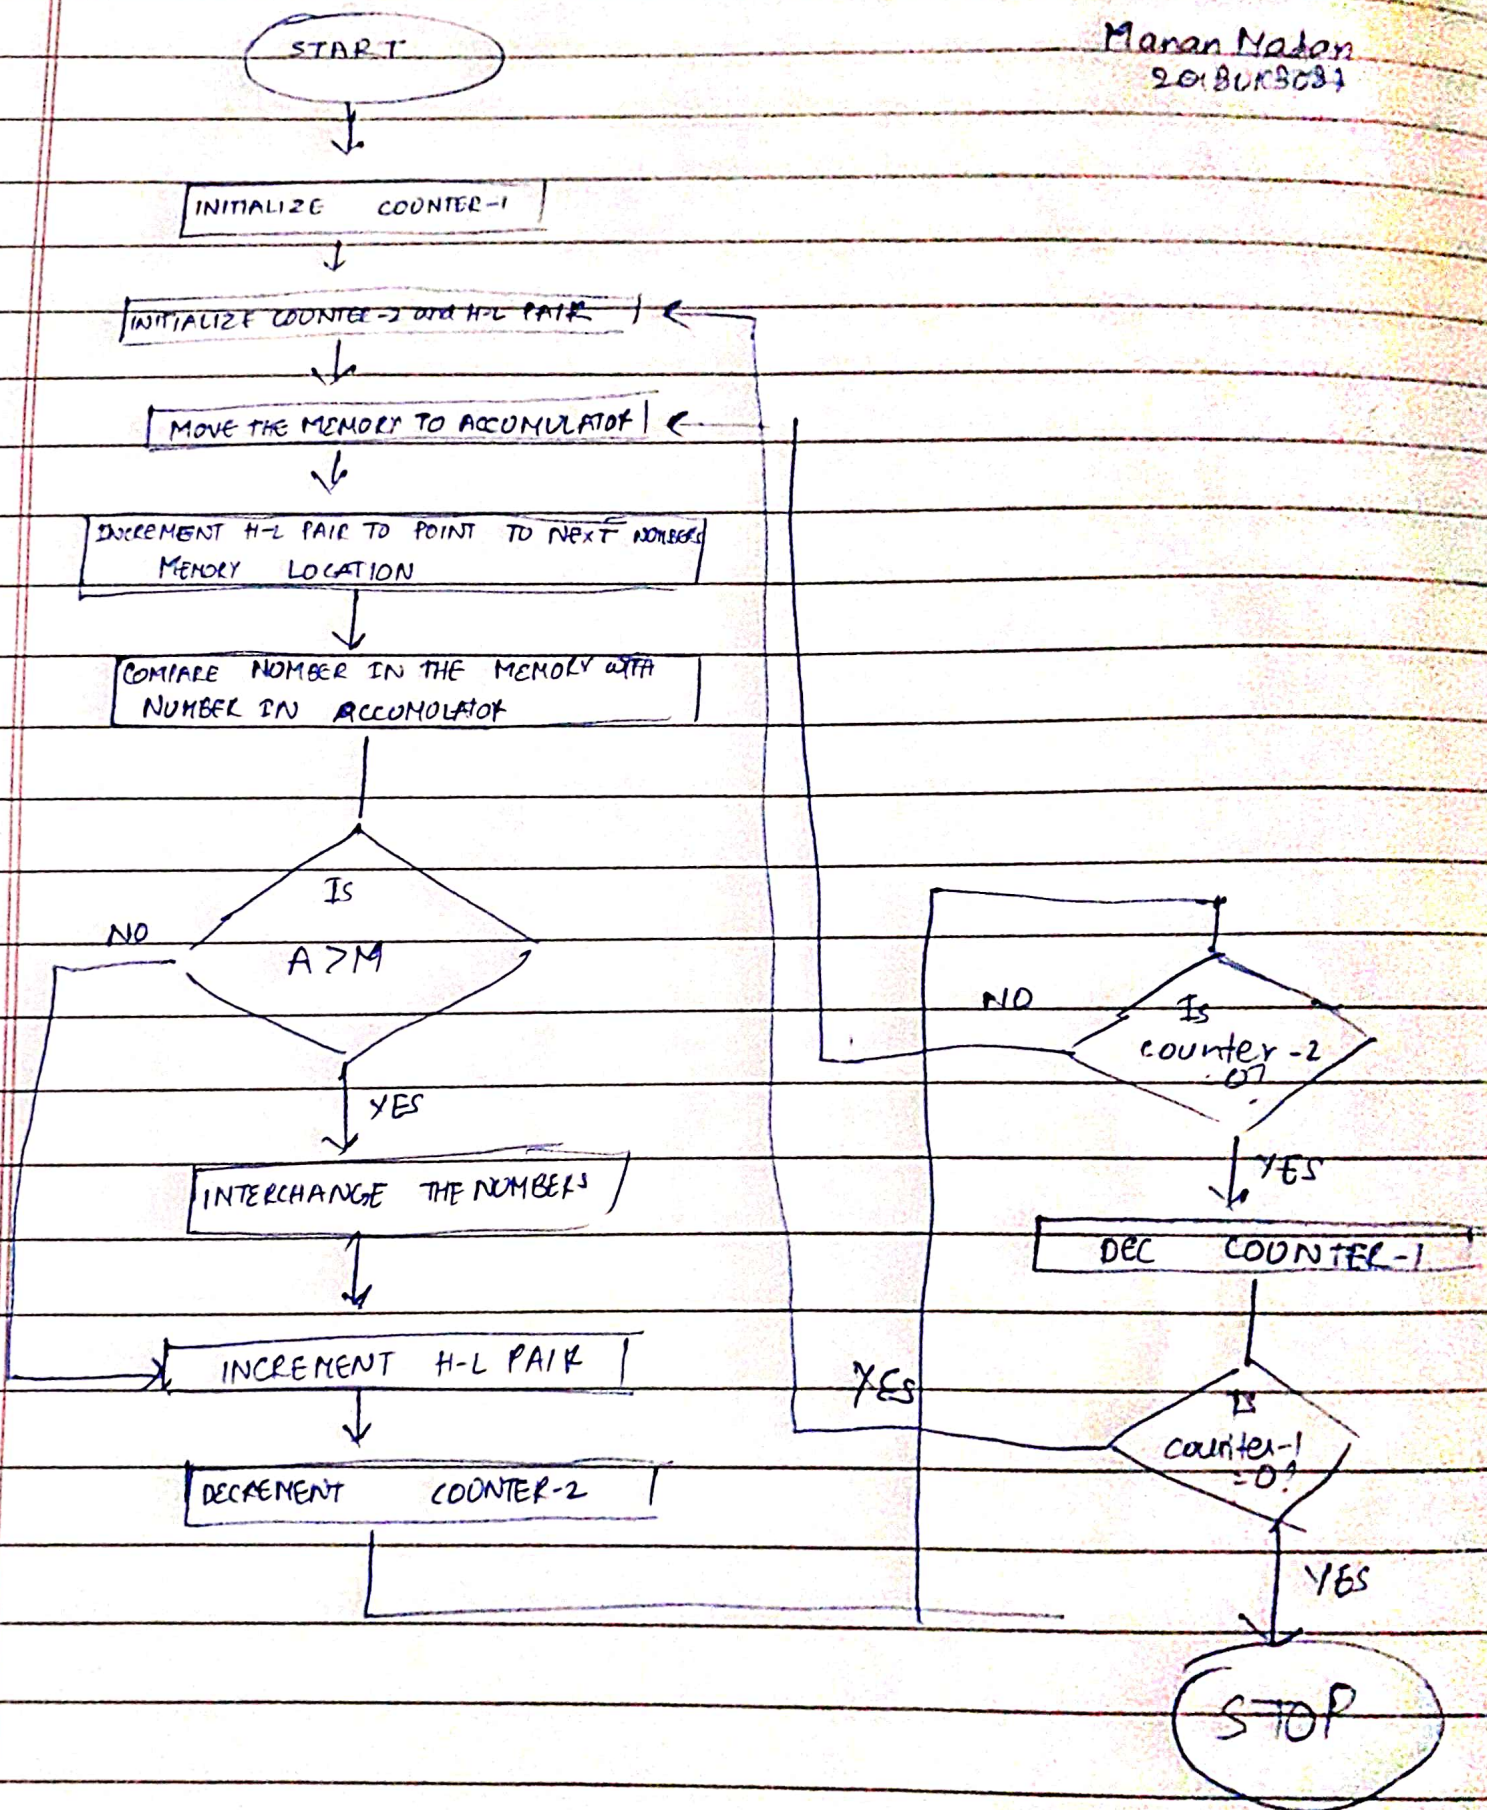 START
Manan Nadan
INITIALIZE COUNTER-1
INITIALIZE COUNTER-2 and H-L PAIR
MOVE THE MEMORY TO ACCUMULATOR
INCREMENT H-L PAIR TO POINT TO NEXT NUMBERS
MEMORY LOCATION
COMPARE NUMBER IN THE MEMORY WITH
NUMBER IN ACCUMOLATOR
Is
A > M
NO
YES
INTERCHANGE THE NUMBERS
INCREMENT H-L PAIR
DECREMENT COUNTER-2
Is
counter-2
=0?
NO
YES
DEC COUNTER-1
Is
counter-1
=0?
YES
YES
STOP